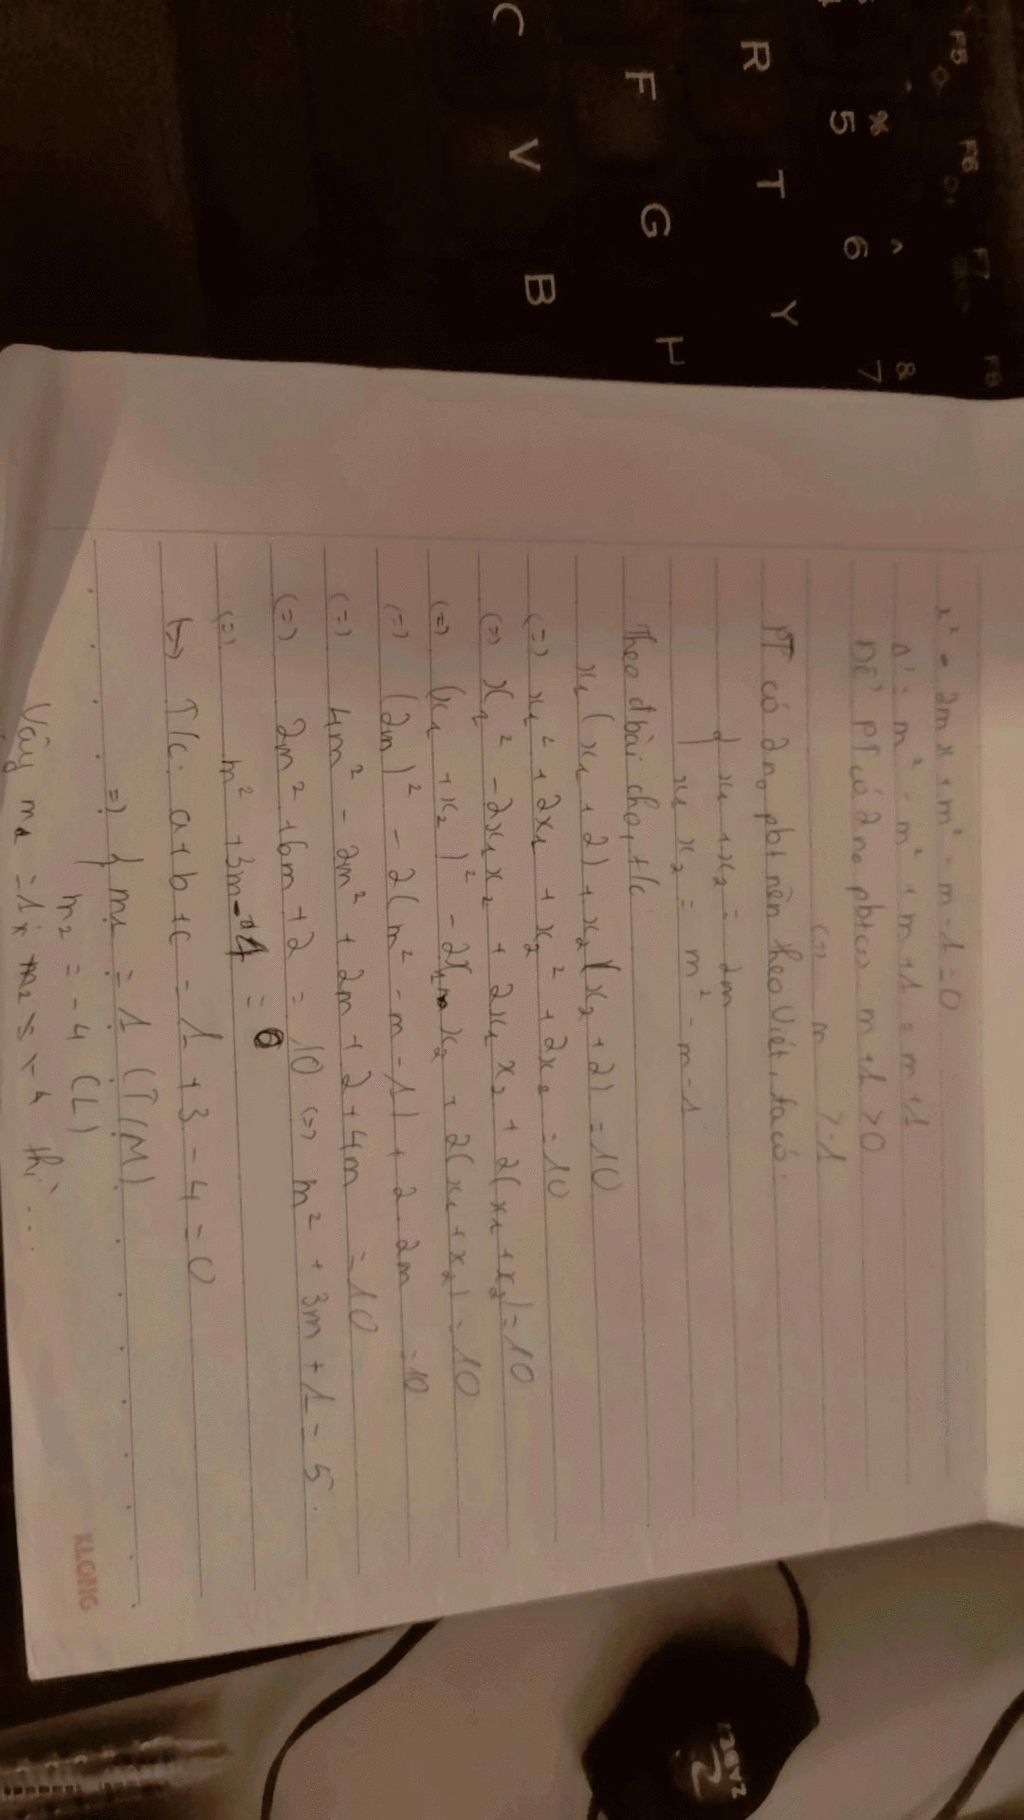 x² - 2mx + m² - m - 1 = 0
Δ' = m² - m² + m + 1 = m + 1
Để PT có 2 no pbt <=> m + 1 > 0
<=> m > -1
PT có 2 no pbt nên theo Viét, ta có:
{ x₁ + x₂ = 2m
x₁ x₂ = m² - m - 1
Theo đbài cho, t/c
x₁(x₁ + 2) + x₂(x₂ + 2) = 10
(=) x₁² + 2x₁ + x₂² + 2x₂ = 10
(=) x₁² - 2x₁x₂ + 2x₁x₂ + 2(x₁ + x₂) = 10
(=) (x₁ + x₂)² - 2x₁x₂ + 2(x₁ + x₂) = 10
(=) (2m)² - 2(m² - m - 1) + 2.2m = 10
(=) 4m² - 2m² + 2m + 2 + 4m = 10
(=) 2m² + 6m + 2 = 10 (=) m² + 3m + 1 = 5
(=) m² + 3m - 4 = 0
T/c: a + b + c = 1 + 3 - 4 = 0
=> { m₁ = 1 (T/M)
m₂ = -4 (L)
Vậy = 1 = -4 thì ...
KLONG
F5 F6 F7 F8
* ^ &
5 6 7
R T Y
F G H
C V B